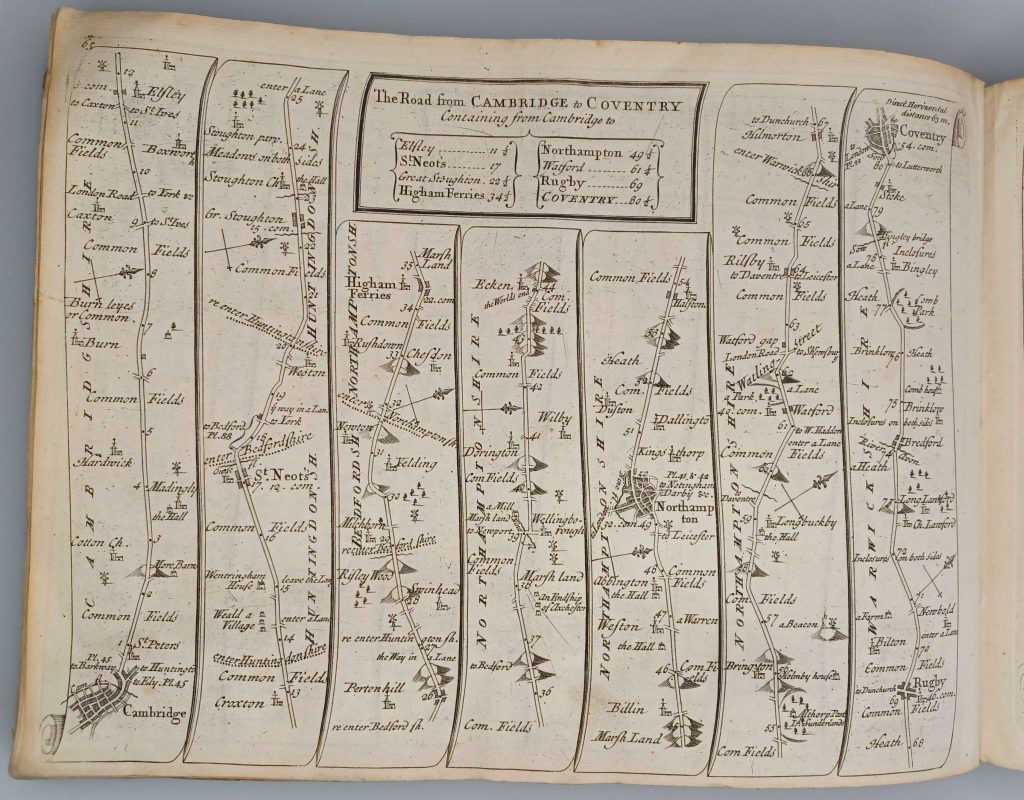 65
The Road from CAMBRIDGE to COVENTRY
Containing from Cambridge to
Elsley 11 ½
St. Neot's 17
Great Stoughton 22 ½
Higham Ferries 34 ½
Northampton 49 ½
Watford 61 ¼
Rugby 69
COVENTRY 80 ¼
12
Elsley
to Caxton
to St. Ives
11
Common Fields
10
London Road
to York &c
Caxton
9
to St. Ives
Common Fields
8
Burn leyes
or Common
7
Burn
6
Common Fields
5
Hardwick
4
Madingly
the Hall
Cotton Ch.
3
More Barn
2
Common Fields
1
St. Peters
Pl. 45
to Barkway
to Huntington
to Ely. Pl. 45
Cambridge
CAMBRIDGSHIRE
enter a Lane
25
Stoughton parv.
24
Meadows on both sides
Stoughton Ch.
the Hall
Gr. Stoughton
15. com.
Common Fields
re enter Huntingtonshire
20
Weston
19
y way in a Lane
to Bedford
Pl. 88
to York
18
enter Bedfordshire
St. Neot's
17. 12. com.
Common Fields
16
Wentringham
House
leave the Lane
15
Weald a
Village
enter a Lane
14
enter Huntingdonshire
Common Fields
Croxton
13
HUNTINGDONSH
HUNTINGDONSH
Marsh
Land
35
Higham
Ferries
22. com
34
Common Fields
Rushdown
33
Chesdon
32
enter Northamptonsh
Newton
31
Felding
30
Milchborn
29
re enter Bedford shire
Risley Wood
Swinhead
28
re enter Huntington sh.
the Way in a Lane
27
Pertenhill
26
re enter Bedford sh.
NORTHAMPTONSH
BEDFORDSH
Ecken
the Worlds end
44
Com.
Fields
Common Fields
42
Wilby
41
Dorington
Com. Fields
a Mill
Marsh land
to Newport
Wellingborough
39
Common
Fields
38
Marsh land
an Endship
of Uxchester
37
to Bedford
36
Com. Fields
NORTHAMPTONSHIRE
Common Fields
54
Halston
Heath
52
Com. Fields
Duston
Dallington
51
Kings thorp
Pl. 41. & 42
to Notingham
Darby &c.
Northampton
32. com. 49
to Leicester
48
Common
Fields
Abbington
the Hall
Weston
the Hall
47
a Warren
46
Com. Fields
Billin
Marsh Land
45
NORTHAMPTONSHIRE
to Dunchurch
67
Hilmorton
enter Warwick shir
66
Common Fields
65
Common Fields
Rilsby
64
to Daventre
to Leicester
Common Fields
63
Watford gap
London Road
Watling Street
to Shewsbury
62
a Lane
a Park
40. com.
Watford
61
to W. Haddon
enter a Lane
Common Fields
60
to Daventre
59
Longbuckby
the Hall
Com. Fields
57
a Beacon
Brington
56
Holmby house
Althorp Park
55
Com Fields
NORTHAMPTONSHIRE
Direct Horizontal
distance 63 m.
Coventry
54. com.
to London
Pl. 22
80
to Lutterworth
Stoke
a Lane
79
Bingley bridge
Sow
Inclosures
78
a Lane
Bingley
Heath
77
Comb
Park
Brinklow
Heath
Comb house
75
Brinklow
Inclosures on both sides
Bredford
River Avon
a Heath
73
Long Lawford
Ch. Lawford
72
Inclosures on both sides
71
Newbold
a Farm
enter a Lane
Bilton
70
Common Fields
to Dunchurch
Rugby
69
40. com.
Common Fields
Heath
68
WARWICKSHIRE